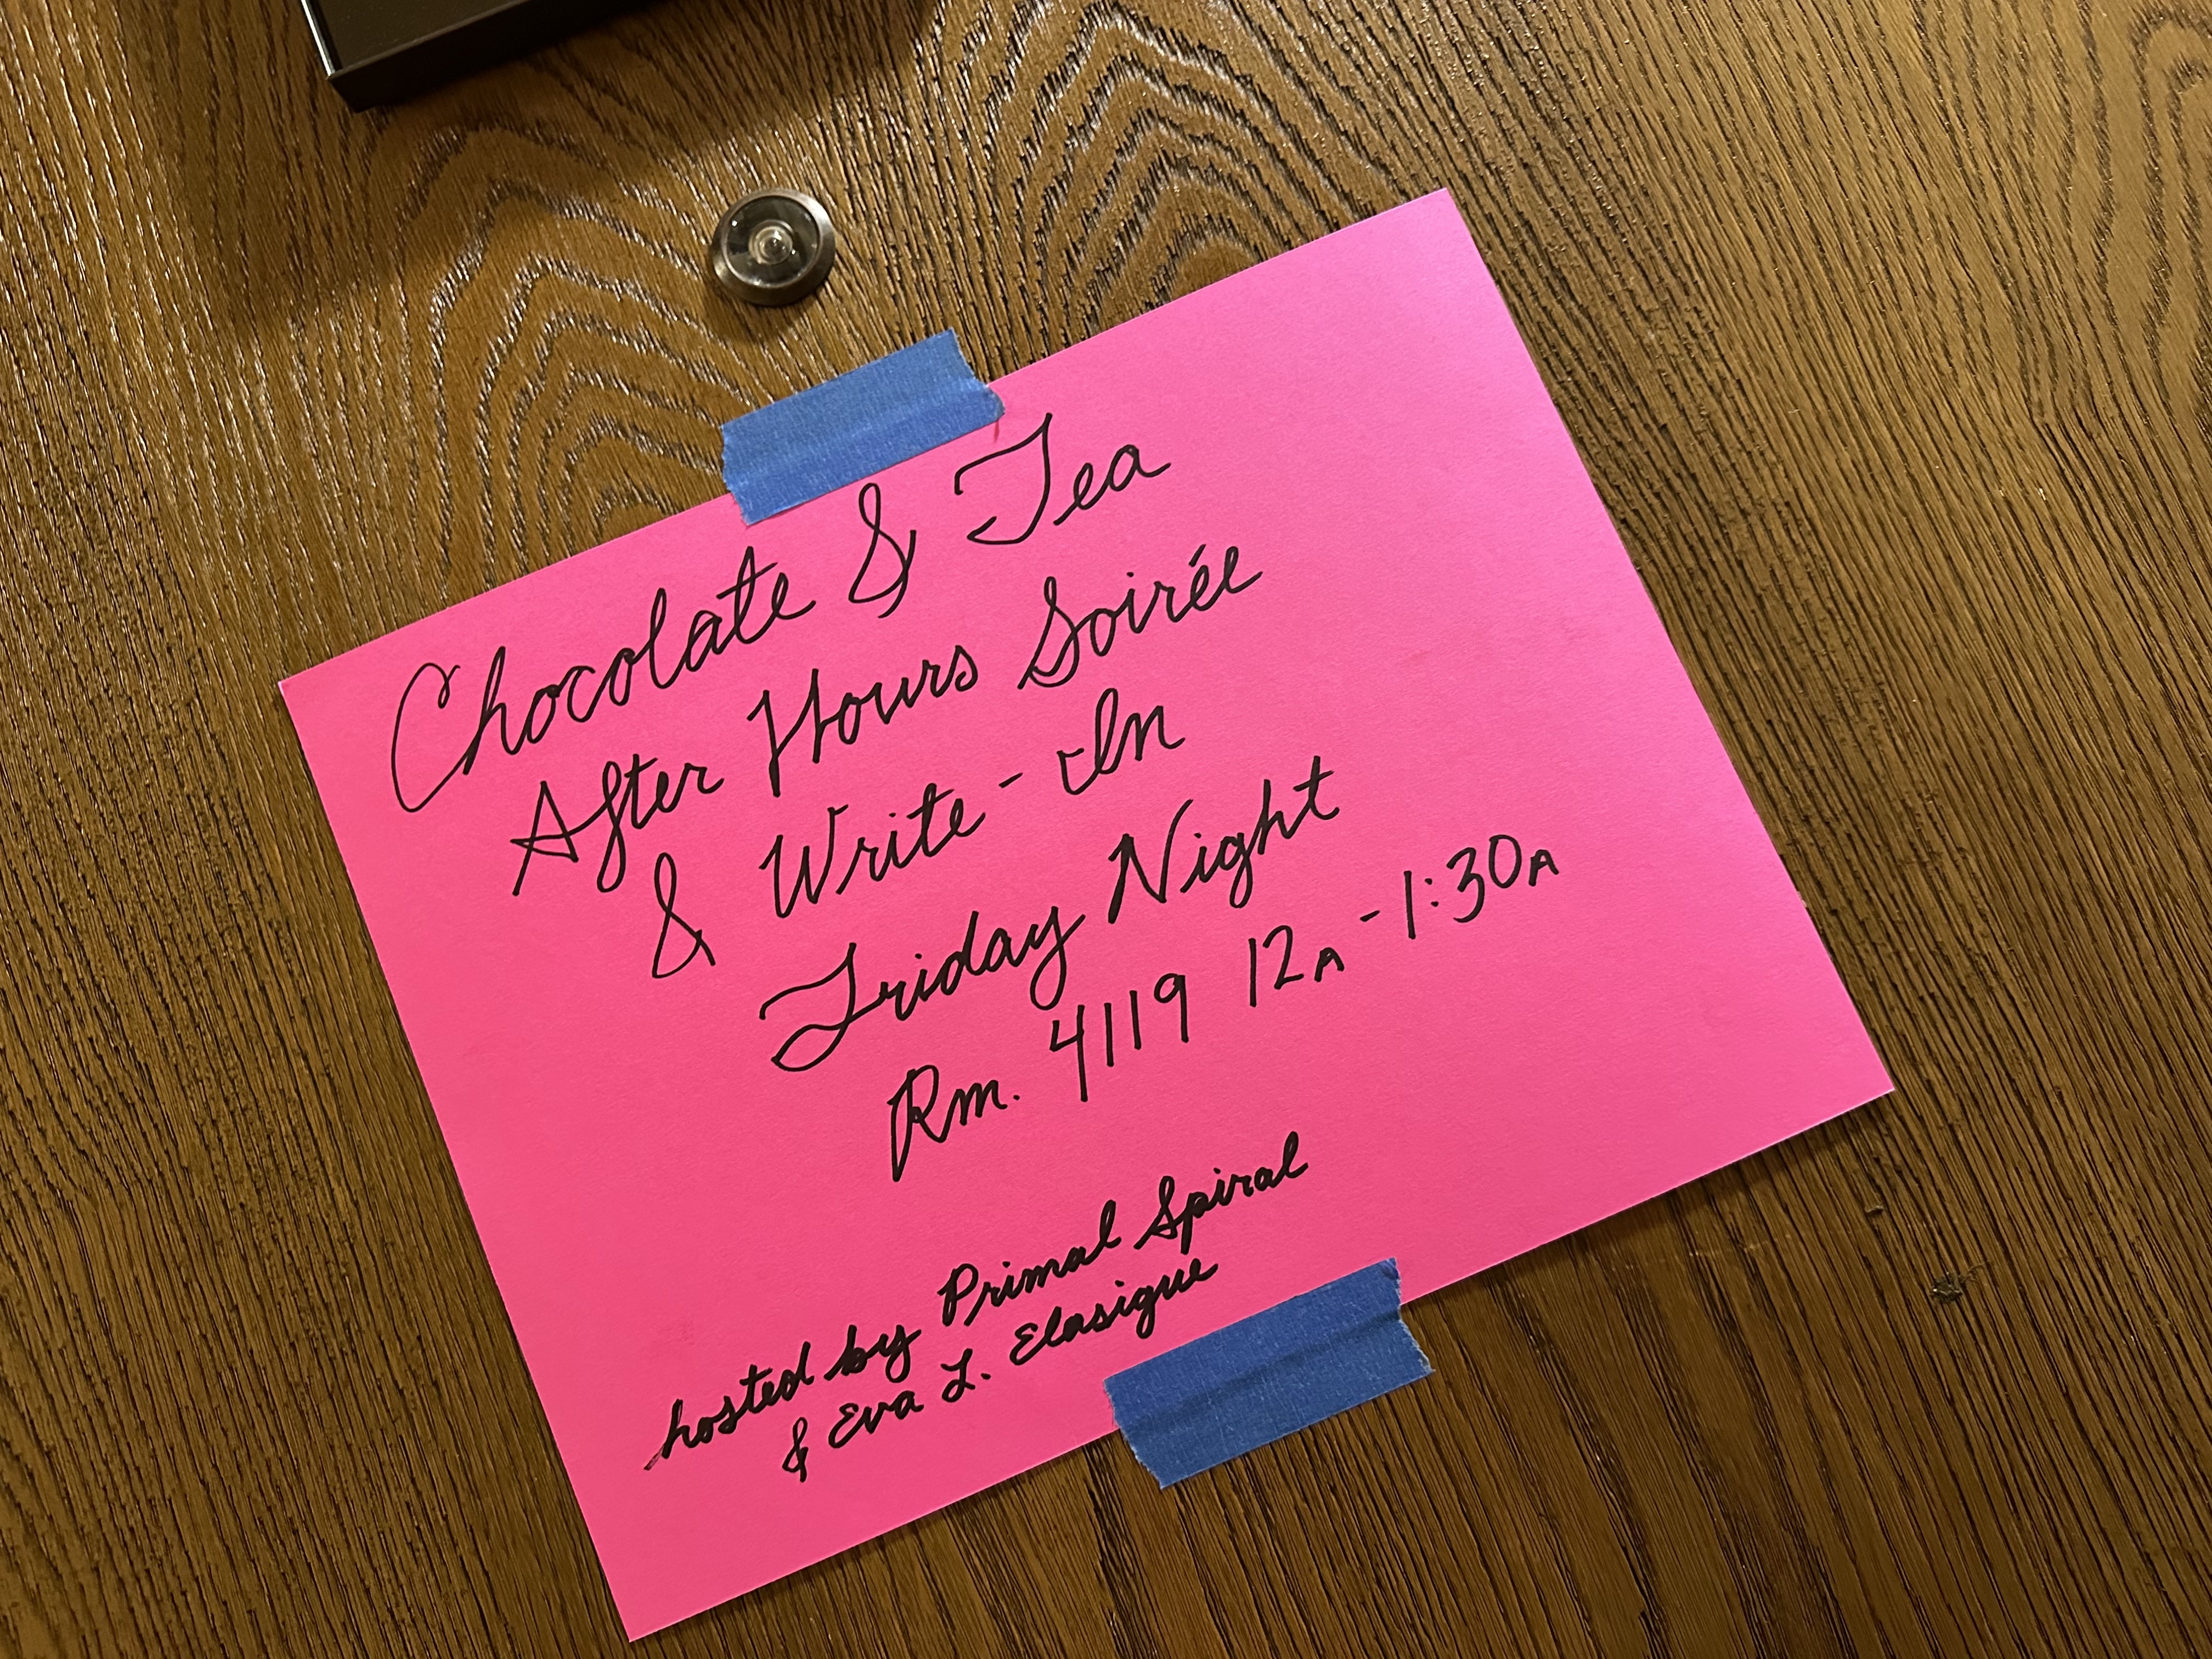 Chocolate & Tea
After Hours Soirée
& Write-In
Friday Night
Rm. 4119 12A-1:30A
hosted by Primal Spiral
& Eva L. Elasigue